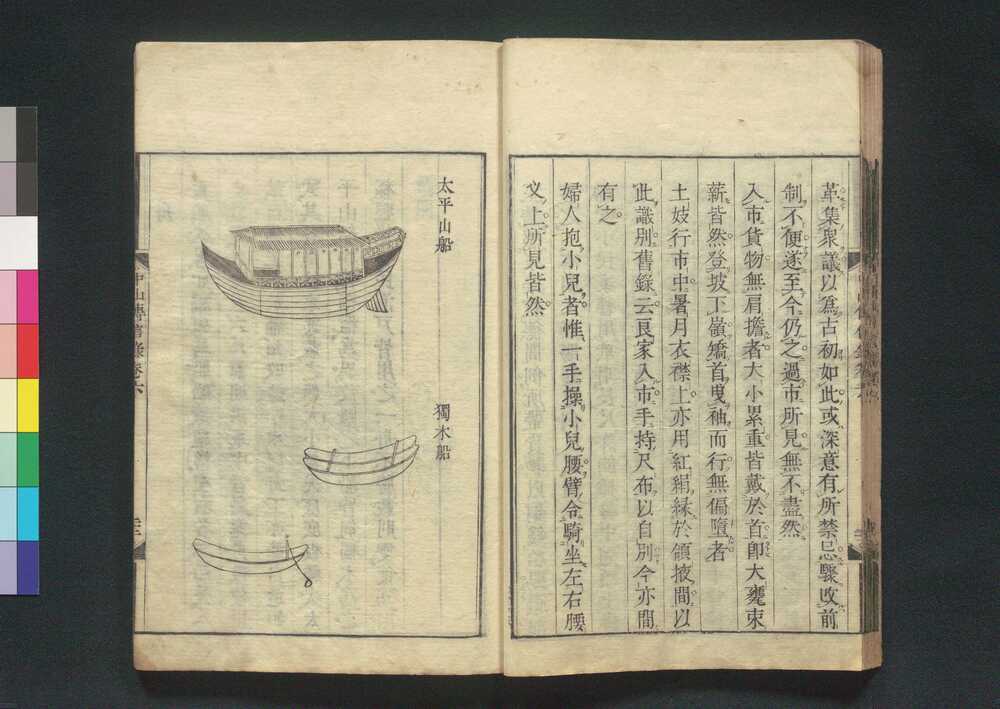 革集衆議以爲古初如此或深意有所禁忌驟改前
制不便遂至今仍之過市所見無不盡然
入市貨物無肩擔者大小累重皆戴於首卽大甕束
薪皆然登坡下嶺矯首曳袖而行無偏墮者
土妓行市中暑月衣襟上亦用紅絹緣於領掖間以
此識別舊錄云良家入市手持尺布以自別今亦間
有之
婦人抱小兒者惟一手操小兒腰臂令騎坐左右腰
义上所見皆然
太平山船
獨木船
中山傳信錄卷六